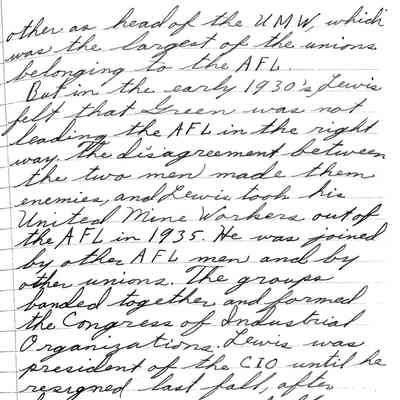 other as head of the UMW, which
was the largest of the unions
belonging to the AFL.
But in the early 1930's Lewis
felt that Green was not
leading the AFL in the right
way. The disagreement between
the two men made them
enemies, and Lewis took his
United Mine Workers out of
the AFL in 1935. He was joined
by other AFL men and by
other unions. The groups
banded together and formed
the Congress of Industrial
Organizations. Lewis was
president of the CIO until he
resigned last fall, after